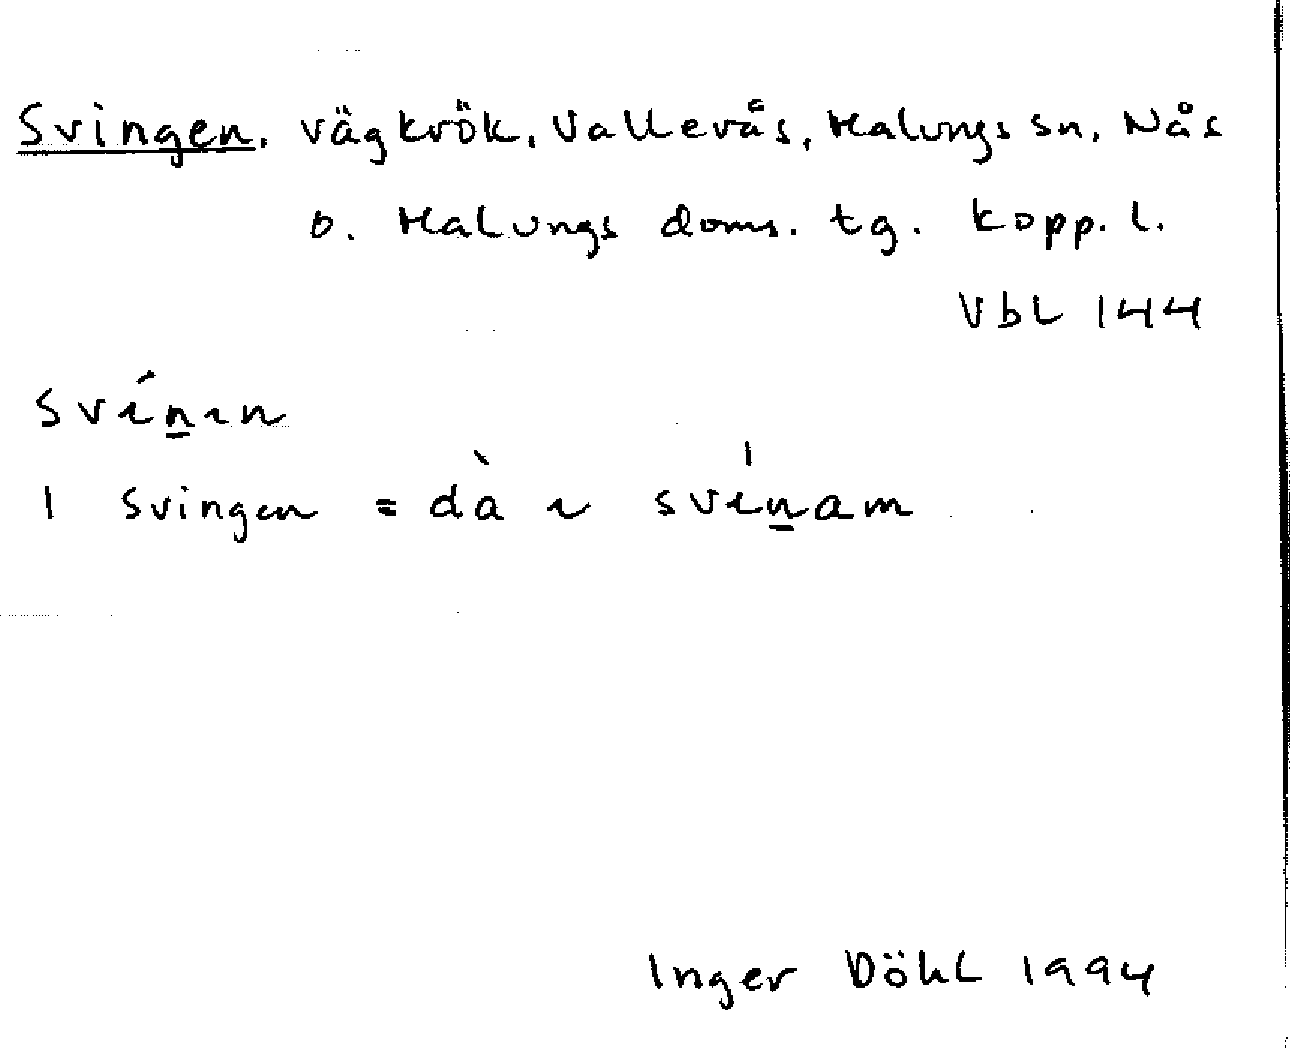 Svingen, vägkrök, Vallerås, Malungs sn, Nås
o. Malungs doms. tg. Kopp. l.
VbL 144
svi̇́n̲ın
I Svingen = dà ı svín̲am
Inger Döhl 1994